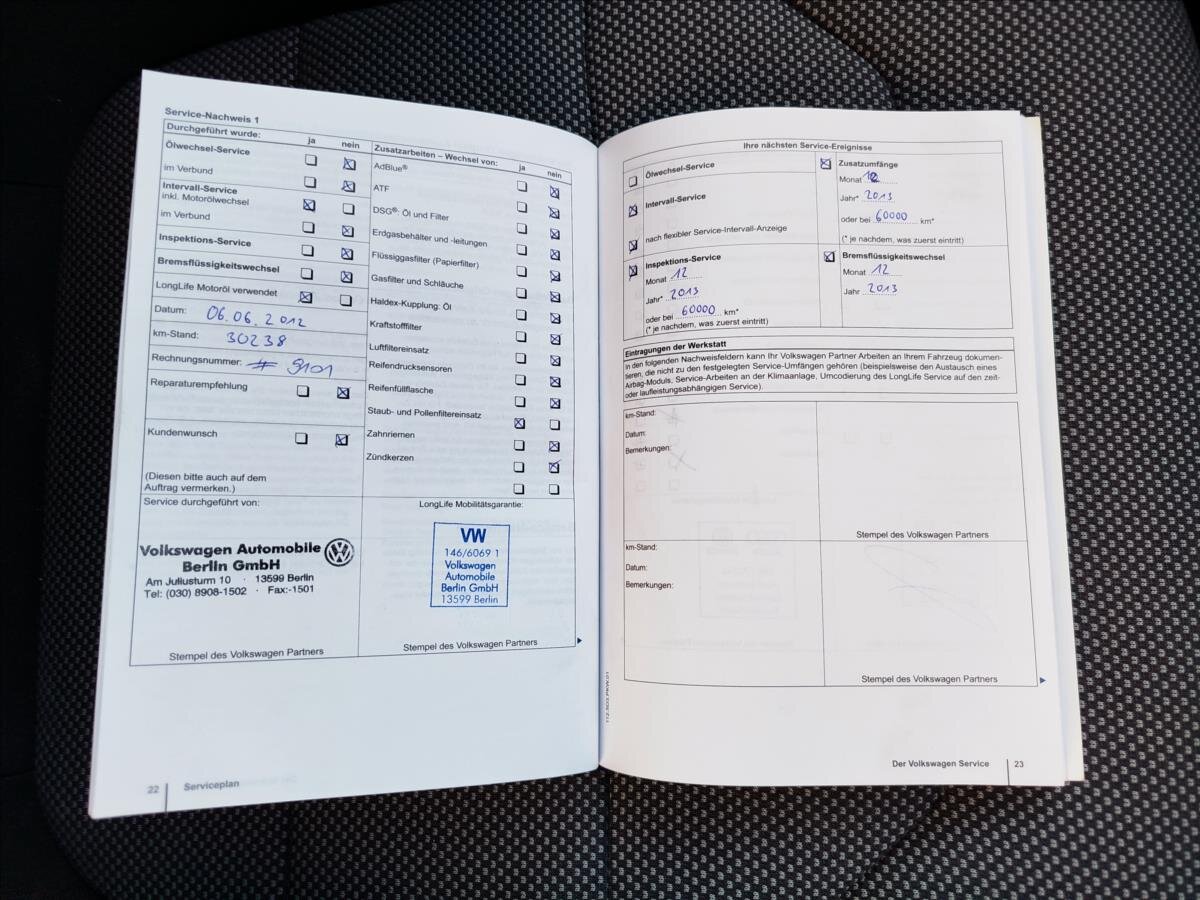 Service-Nachweis 1
Durchgeführt wurde:
ja nein
Ölwechsel-Service
im Verbund
Intervall-Service
inkl. Motorölwechsel
im Verbund
Inspektions-Service
Bremsflüssigkeitswechsel
LongLife Motoröl verwendet
Datum: 06.06.2012
km-Stand: 30238
Rechnungsnummer: # 9101
Reparaturempfehlung
Kundenwunsch
(Diesen bitte auch auf dem
Auftrag vermerken.)
Zusatzarbeiten – Wechsel von:
ja nein
AdBlue®
ATF
DSG®: Öl und Filter
Erdgasbehälter und -leitungen
Flüssiggasfilter (Papierfilter)
Gasfilter und Schläuche
Haldex-Kupplung: Öl
Kraftstofffilter
Luftfiltereinsatz
Reifendrucksensoren
Reifenfüllflasche
Staub- und Pollenfiltereinsatz
Zahnriemen
Zündkerzen
Service durchgeführt von:
Volkswagen Automobile
Berlin GmbH
Am Juliusturm 10 · 13599 Berlin
Tel: (030) 8908-1502 · Fax:-1501
Stempel des Volkswagen Partners
LongLife Mobilitätsgarantie:
VW
146/6069 1
Volkswagen
Automobile
Berlin GmbH
13599 Berlin
Stempel des Volkswagen Partners
22 Serviceplan
Ihre nächsten Service-Ereignisse
Ölwechsel-Service
Intervall-Service
nach flexibler Service-Intervall-Anzeige
Inspektions-Service
Monat 12
Jahr* 2013
oder bei 60000 km*
(* je nachdem, was zuerst eintritt)
Zusatzumfänge
Monat 12
Jahr* 2013
oder bei 60000 km*
(* je nachdem, was zuerst eintritt)
Bremsflüssigkeitswechsel
Monat 12
Jahr 2013
Eintragungen der Werkstatt
In den folgenden Nachweisfeldern kann Ihr Volkswagen Partner Arbeiten an Ihrem Fahrzeug dokumen-
tieren, die nicht zu den festgelegten Service-Umfängen gehören (beispielsweise den Austausch eines
Airbag-Moduls, Service-Arbeiten an der Klimaanlage, Umcodierung des LongLife Service auf den zeit-
oder laufleistungsabhängigen Service).
km-Stand:
Datum:
Bemerkungen:
Stempel des Volkswagen Partners
km-Stand:
Datum:
Bemerkungen:
Stempel des Volkswagen Partners
Der Volkswagen Service 23